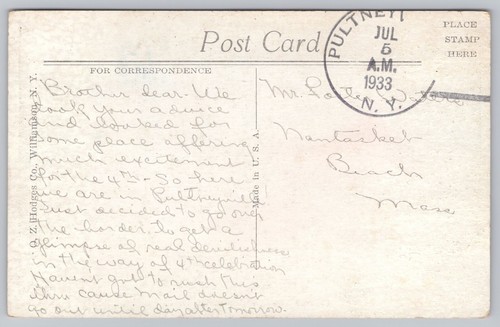 Post Card
PULTNEY
JUL
5
A.M.
1933
N. Y.
PLACE
STAMP
HERE
FOR CORRESPONDENCE
O. Z. Hodges Co., Williamson, N. Y.
Made in U. S. A.
Brother dear: We
took your advice
and looked for
some place offering
much excitement
for the 4th - So here
we are in Pultneyville!
Just decided to go over
the border to get a
glimpse of real devilishness
in the way of 4th celebration
Havent got to rush this
thru cause mail doesn't
go out until day after tomorrow.
Mr.
Nantasket
Beach
Mass